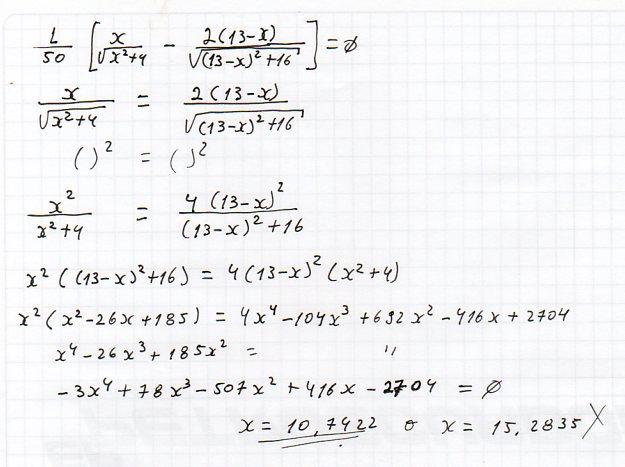 1/50 [ x/√(x²+4) − 2(13−x)/√((13−x)²+16) ] = ∅
x/√(x²+4) = 2(13−x)/√((13−x)²+16)
( )² = ( )²
x²/(x²+4) = 4(13−x)²/((13−x)²+16)
x²((13−x)²+16) = 4(13−x)²(x²+4)
x²(x²−26x+185) = 4x⁴−104x³+692x²−416x+2704
x⁴−26x³+185x² = "
−3x⁴+78x³−507x²+416x−2704 = ∅
x = 10,7422 o x = 15,2835 X